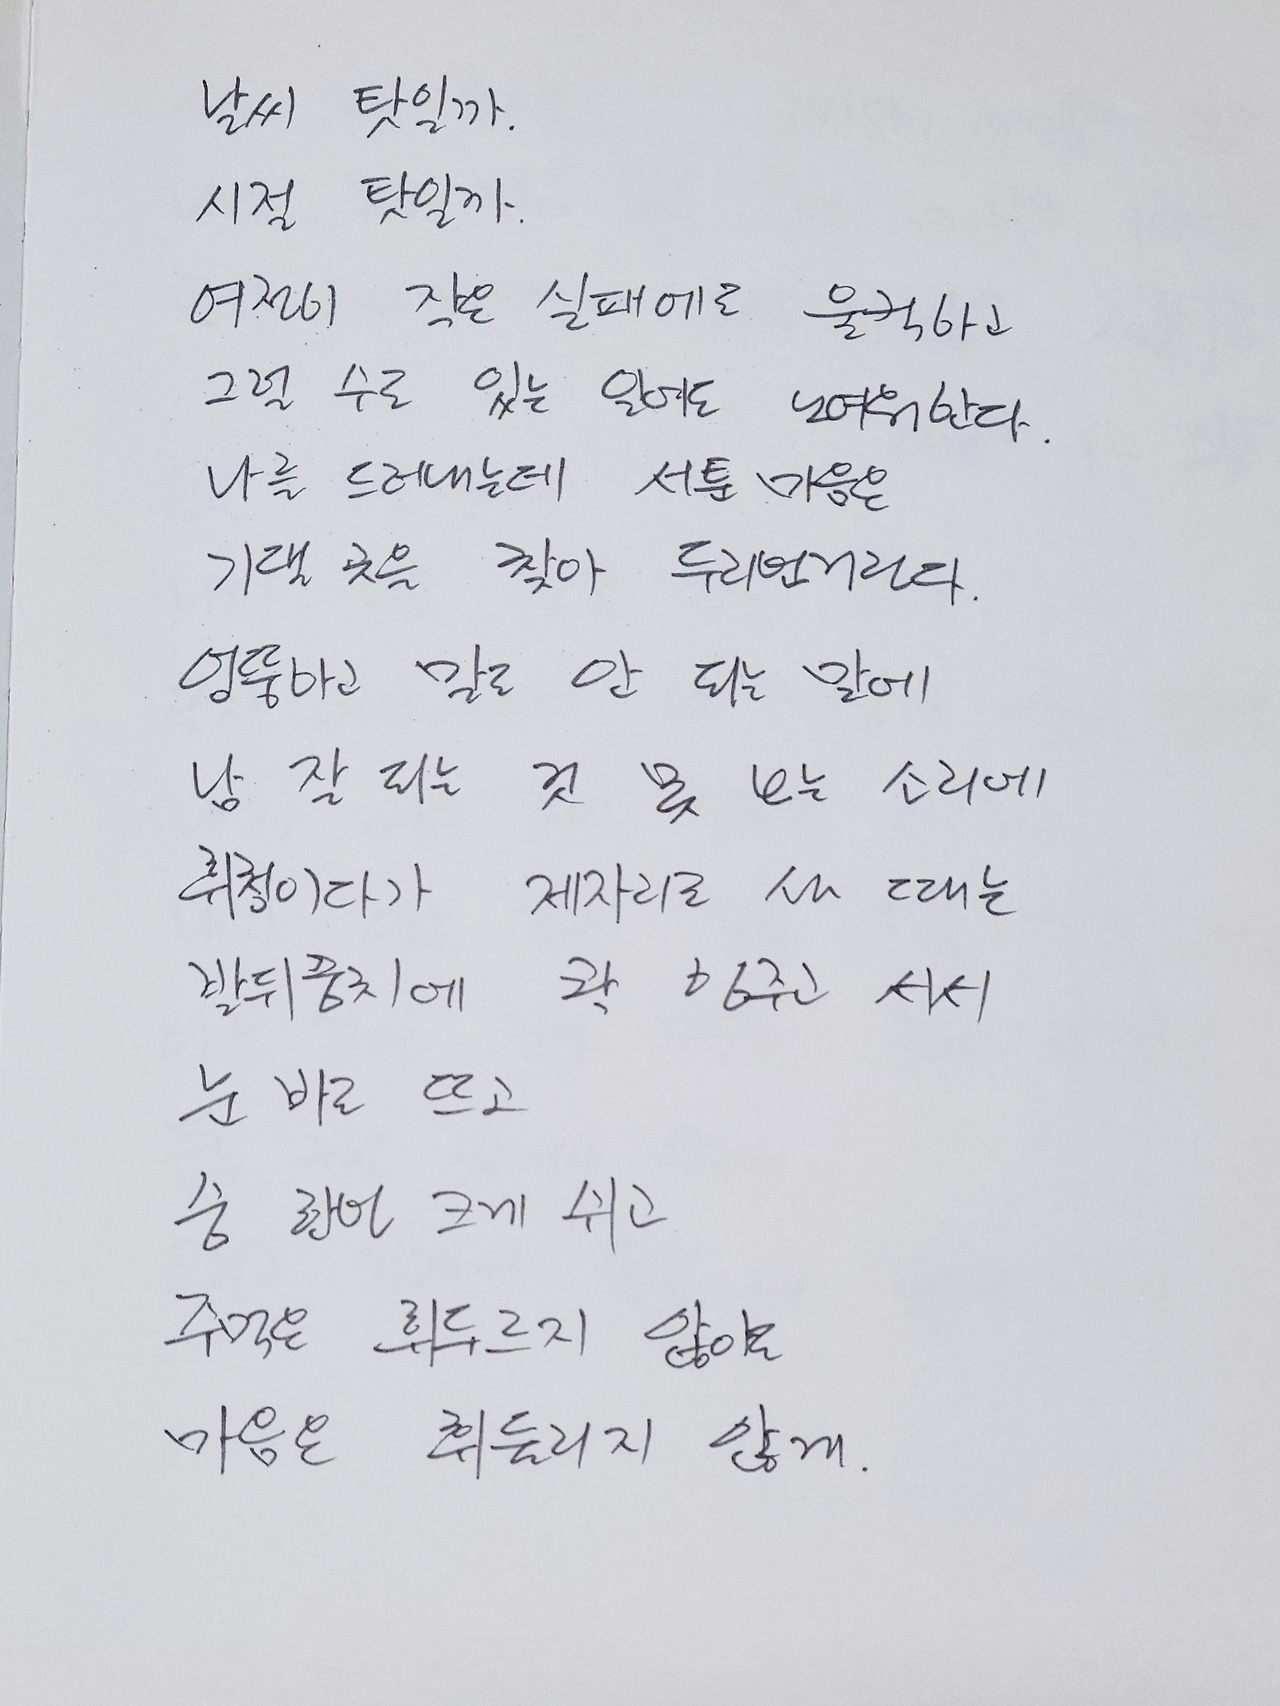 날씨 탓일까.
시절 탓일까.
여전히 작은 실패에도 울컥하고
그럴 수도 있는 일에도 노여워한다.
나를 드러내는데 서툰 마음은
기댈 곳을 찾아 두리번거린다.
엉뚱하고 말도 안 되는 말에
남 잘 되는 것 못 보는 소리에
휘청이다가 제자리로 설 때는
발뒤꿈치에 콱 힘주고 서서
눈 바로 뜨고
숨 한번 크게 쉬고
주먹은 휘두르지 않아도
마음은 휘둘리지 않게.